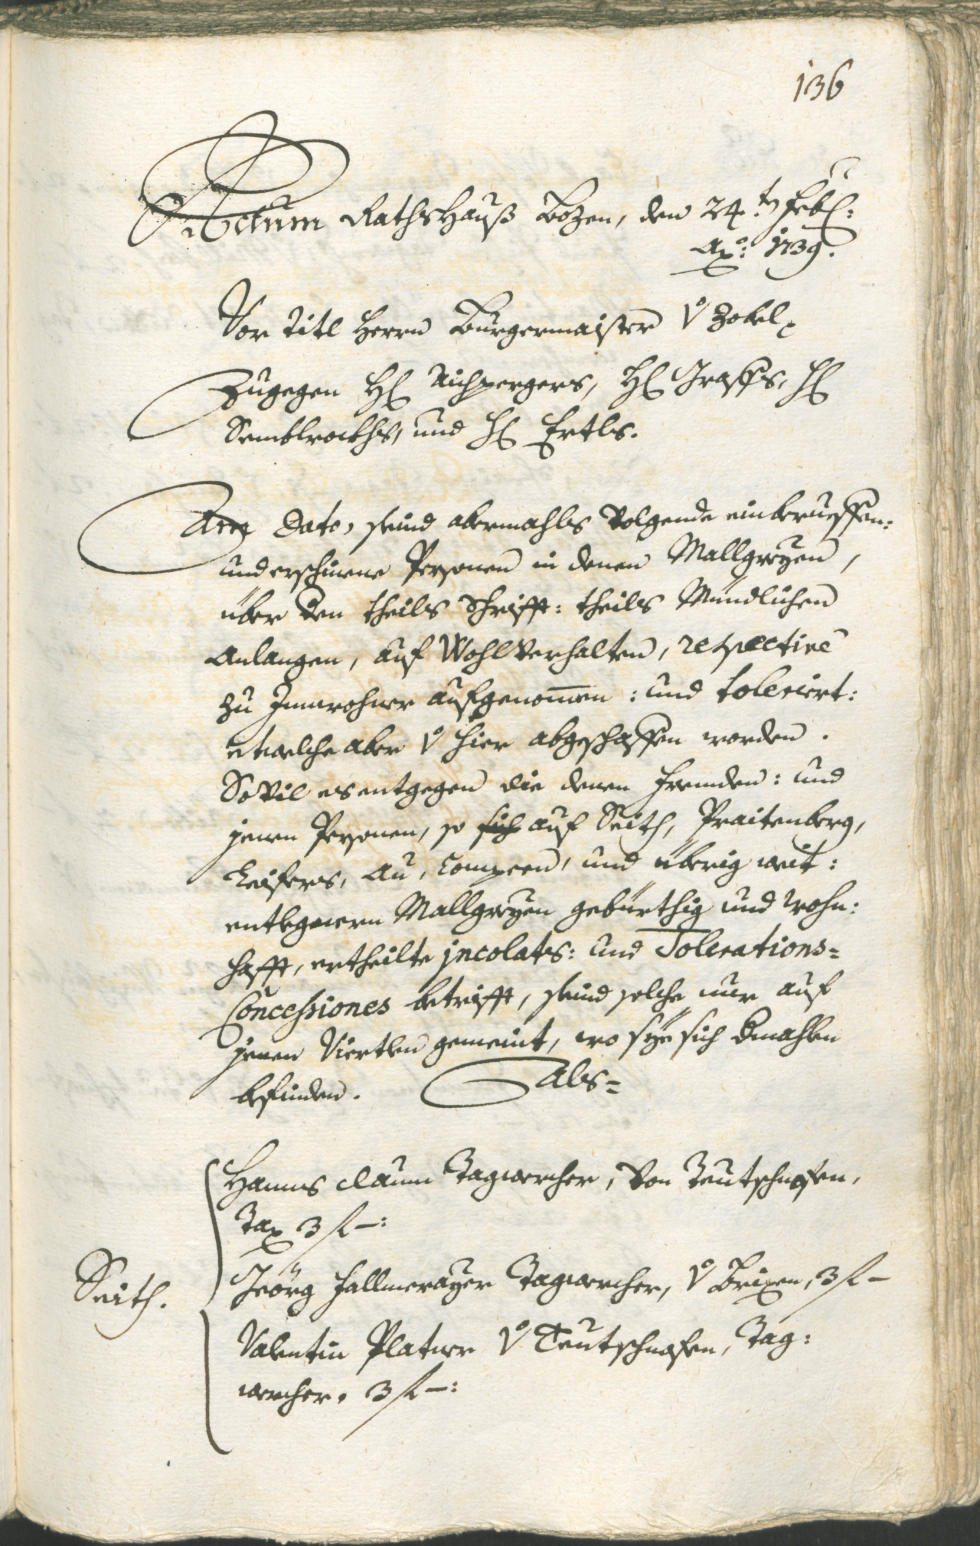 136
Actum Rathshauß Bozen, den 24.ten Feb:
Ao: 1739.
Vor Titl Herrn Burgermaister v Zobel,
Zugegen H: Aichpergers, H: Graffs, H:
Semblrockhs, und H: Ertls.
Anno Dato, seind abermahls Volgende einberueffen:
und erschinene Personen in denen Mallgreyen,
über den theils Schrifft: theils Mündlichen
Anlangen, auf Wohlverhalten, respective
zu Innwohner aufgenommen: und toleriert:
etwelche aber v hier abgeschaffen worden.
Sovil es entgegen die denen frembden: und
jenen Personen, so sich auf Seith, Praitenberg,
Leifers, Au, Campenn, und überig weit:
entlegnern Mallgreyen gebürthig und wohn:
hafft, ertheilte jncolats: und Tolerations=
Concessiones betrifft, seind solche nur auf
jenen Viertlen gemeint, wo sye sich dmahlen
befinden. Als=
Hanns Daum Tagwercher, von Teutschnofen,
Tax 3 f —:
Seith. Geörg Hallmerayer Tagwercher, v Brixen, 3 f —
Valentin Platner v Teutschnofen, Tag:
wercher. 3 f —: